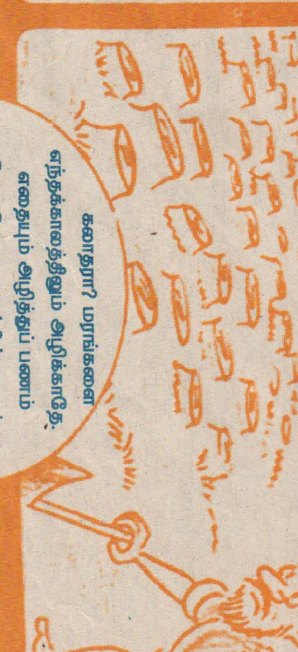 கலாதரா? மரங்களை
எந்தக்காலத்திலும் அழிக்காதே.
எதையும் அழித்துப் பணம்